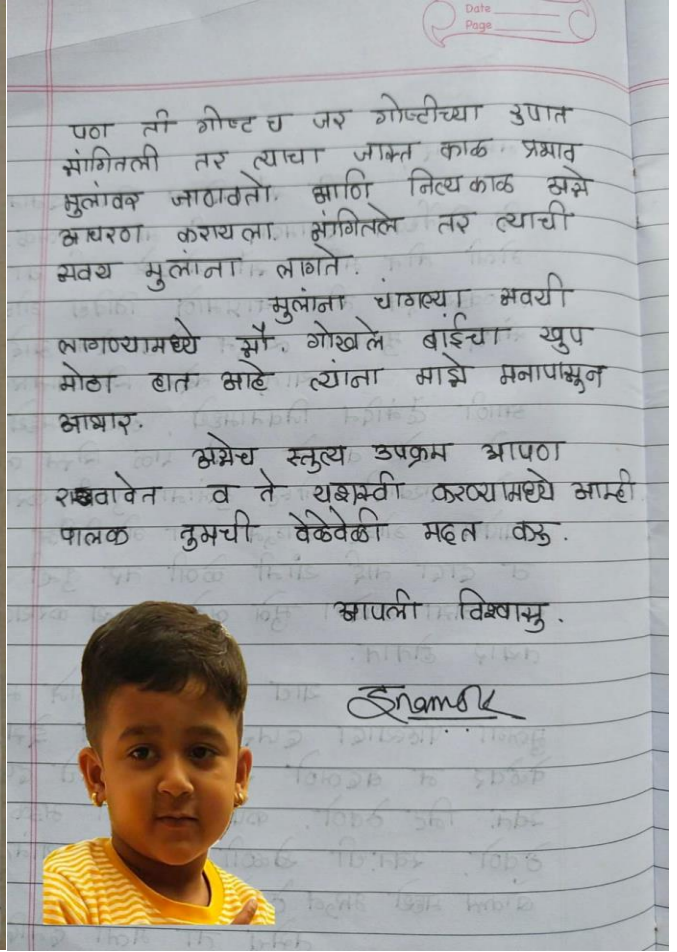 Date
Page
पण ती गोष्ट च जर गोष्टीच्या रुपात
सांगितली तर त्याचा जास्त काळ प्रभाव
मुलांवर जाणवतो. आणि नित्य काळ असे
आचरण करायला. सांगितले तर त्याची
सवय मुलांना लागते.
मुलांना चांगल्या सवयी
लागण्यामध्ये सौ. गोखले बाईंचा खुप
मोठा हात आहे त्यांना माझे मनापासुन
आभार.
असेच स्तुत्य उपक्रम आपण
राबवावेत व ते यशस्वी करण्यामध्ये आम्ही
पालक तुमची वेळेवेळी मदत करु.
आपली विश्वासु.